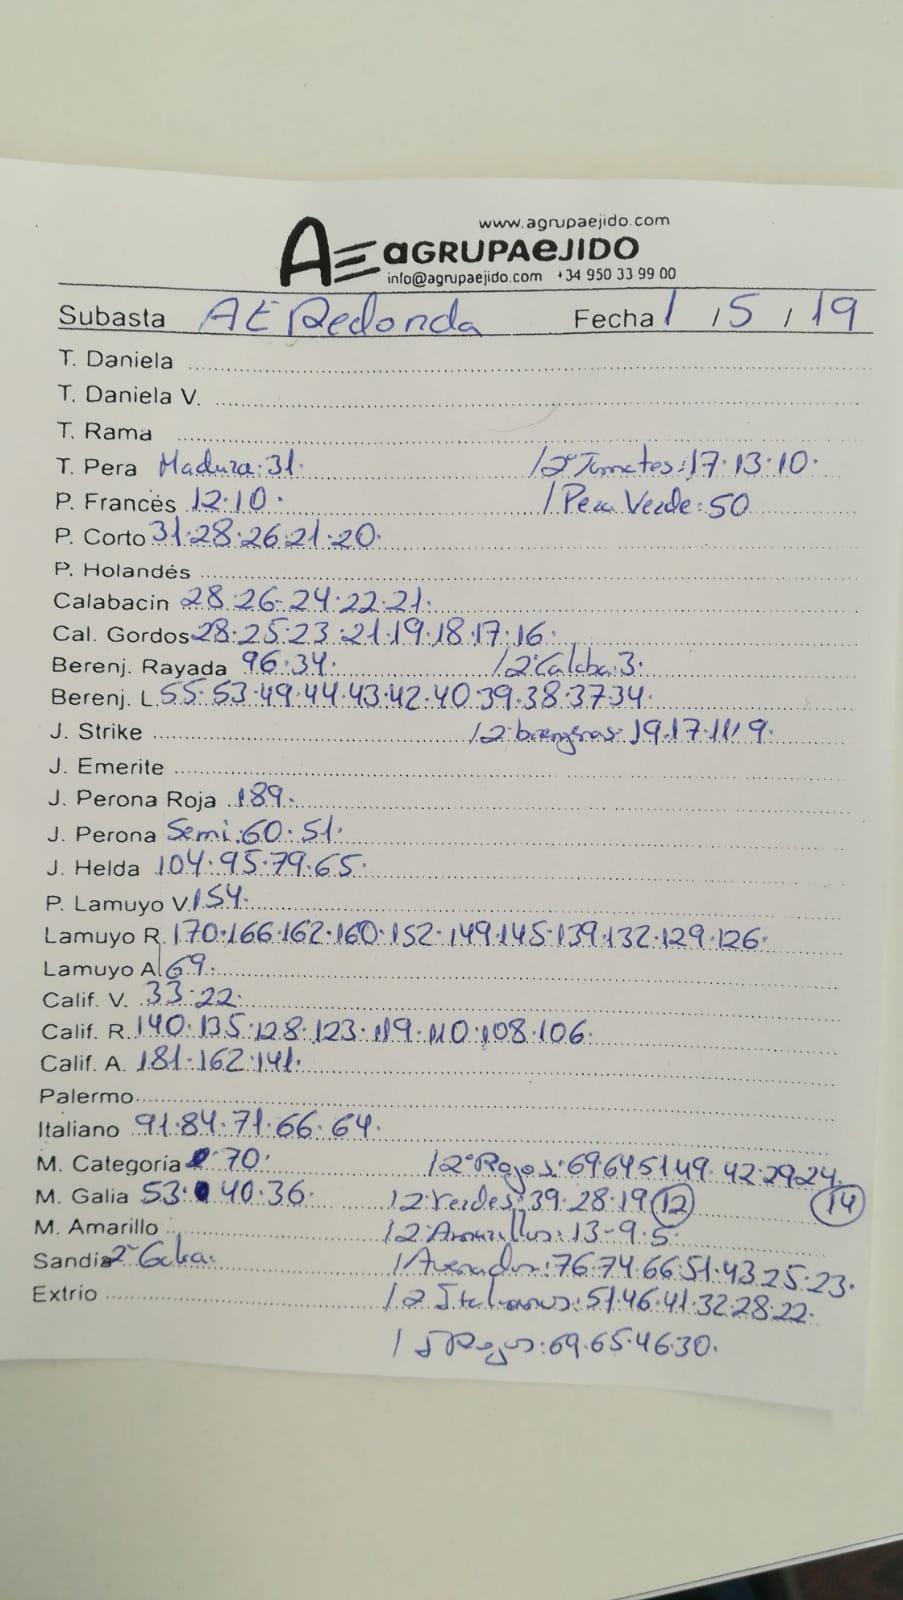 www.agrupaejido.com
AE aGRUPAeJIDO
info@agrupaejido.com +34 950 33 99 00
Subasta AE Redonda Fecha 1 / 5 / 19
T. Daniela
T. Daniela V.
T. Rama
T. Pera Madura: 31. / 2ª Tomates: 17. 13. 10.
P. Francés 12. 10. / Pera Verde: 50
P. Corto 31. 28. 26. 21. 20.
P. Holandés
Calabacin 28. 26. 24. 22. 21.
Cal. Gordos 28. 25. 23. 21. 19. 18. 17. 16.
Berenj. Rayada 96. 34. / 2ª Calaba: 3.
Berenj. L. 55. 53. 49. 44. 43. 42. 40. 39. 38. 37 34.
J. Strike / 2ª berengenas: 19. 17. 11. 9.
J. Emerite
J. Perona Roja 189.
J. Perona Semi: 60. 51.
J. Helda 104. 95. 79. 65.
P. Lamuyo V. 154.
Lamuyo R. 170. 166. 162. 160. 152. 149. 145. 139. 132. 129. 126.
Lamuyo A. 69.
Calif. V. 33. 22.
Calif. R. 140. 135. 128. 123. 119. 110. 108. 106.
Calif. A. 181. 162. 141.
Palermo
Italiano 91. 84. 71. 66. 64.
M. Categoría 70. / 2ª Rojos: 69 64 51 49. 42. 29 24. 14
M. Galia 53. 40. 36. / 2ª Verdes: 39. 28. 19 12
M. Amarillo / 2ª Amarillos: 13. 9. 5.
Sandia 2ª Galia. / Asurados: 76. 74. 66. 51. 43. 25. 23.
Extrio / 2 Italianos: 51. 46. 41. 32. 28. 22.
/ J Rojos: 69. 65. 46. 30.